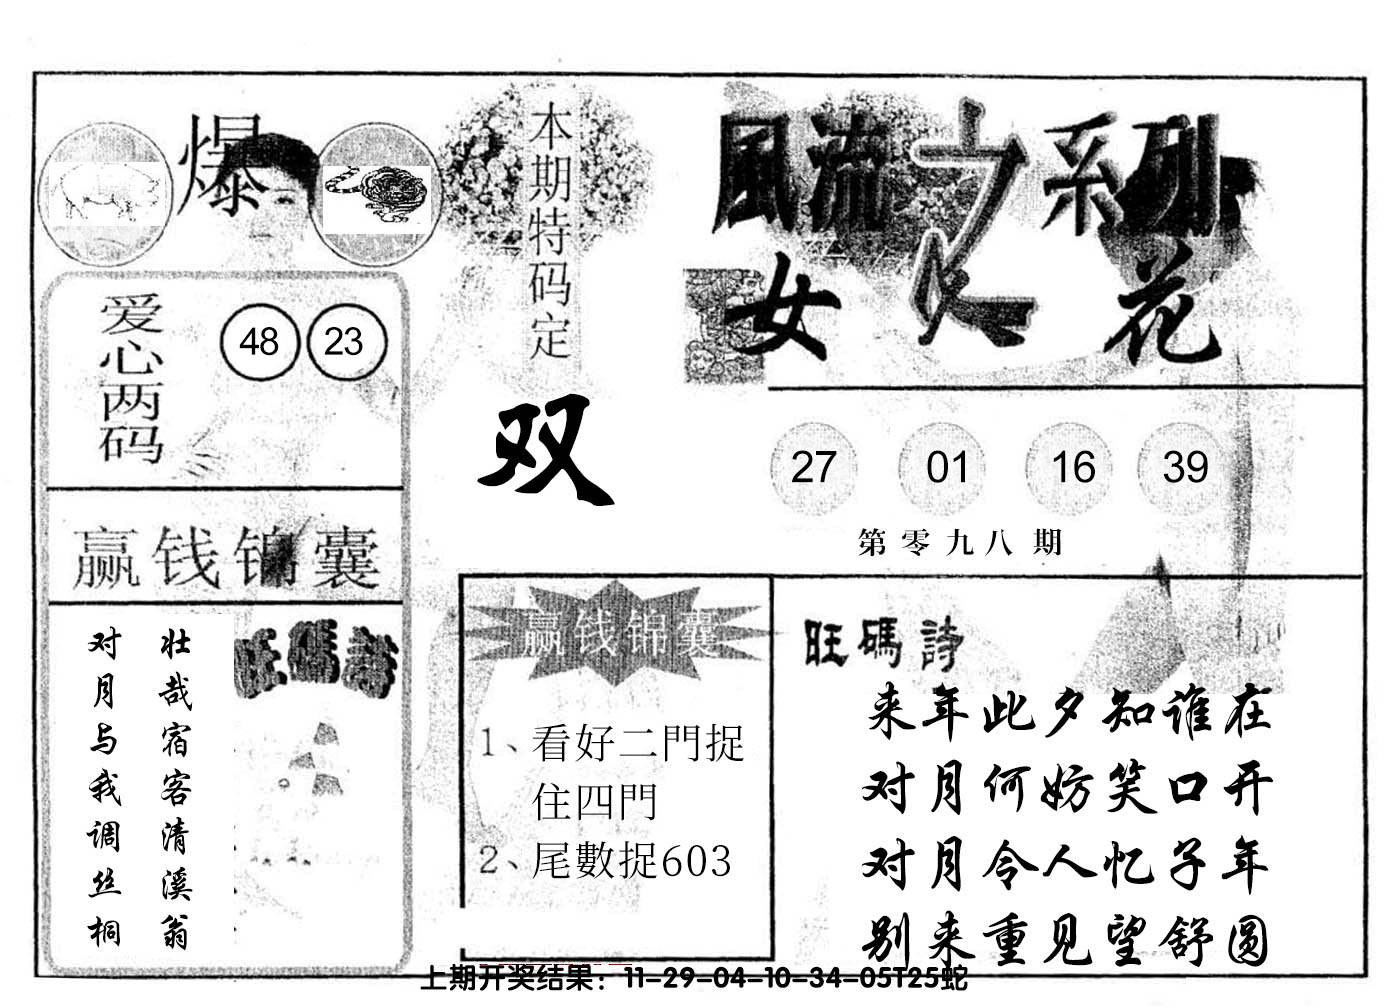 爆
本期特码定
双
風流之系列
女人花
爱心两码
48 23
27 01 16 39
第零九八期
赢钱锦囊
壮哉宿客清溪翁
对月与我调丝桐
旺碼詩
赢钱锦囊
1、看好二門捉
住四門
2、尾數捉603
旺碼詩
来年此夕知谁在
对月何妨笑口开
对月令人忆子年
别来重见望舒圆
上期开奖结果：11-29-04-10-34-05T25蛇